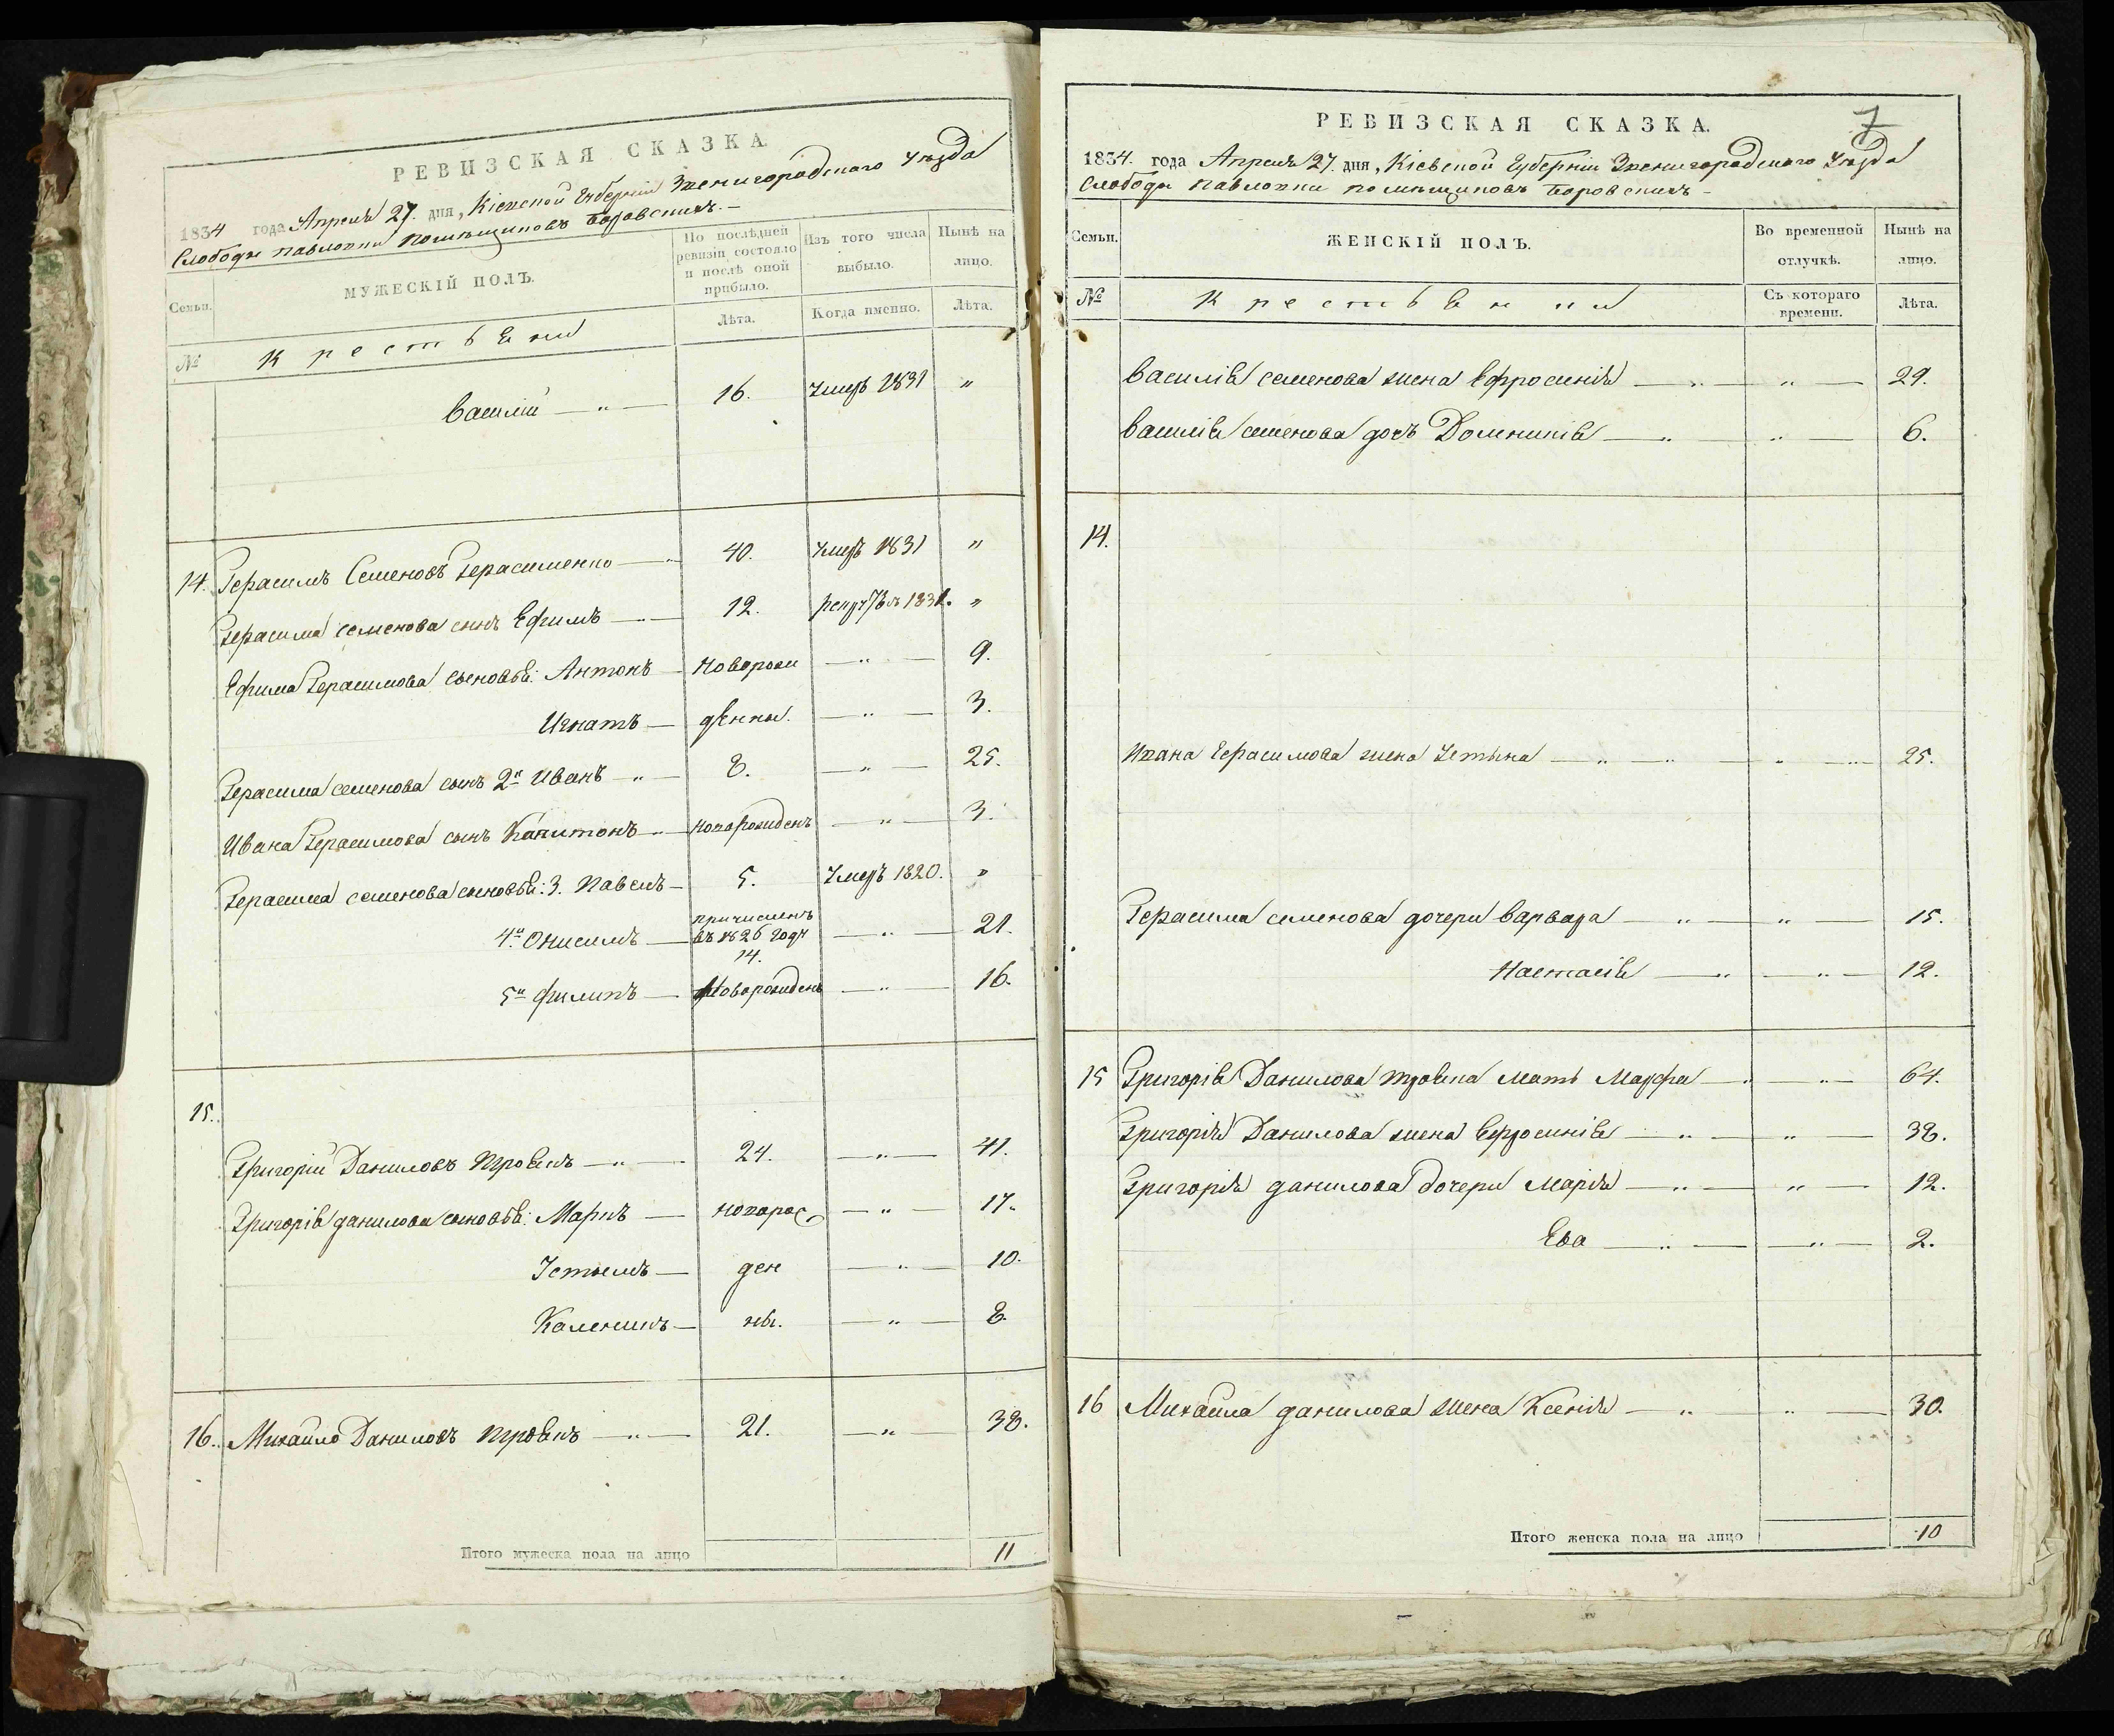 РЕВИЗСКАЯ СКАЗКА
1834 года Апреля 27. дня, Кіевской Губерніи Звенигородскаго уѣзда
Слободы Павловки помѣщиковъ Боровскихъ.—
Семьи.
МУЖЕСКІЙ ПОЛЪ.
По послѣдней ревизіи состояло и послѣ оной прибыло.
Изъ того числа выбыло.
Нынѣ на лицо.
№
Крестьяни
Лѣта.
Когда именно.
Лѣта.
Василій — " — 16. умеръ 1831 "
14. Герасимъ Семеновъ Герасименко — 40. умеръ 1831 "
Герасима Семенова сынъ Ефимъ — 12. 1831. "
Ефима Герасимова сыновья: Антонъ — новорож — " — 9.
Игнатъ —денны. — " — 3.
Герасима Семенова сынъ 2й Иванъ — " — 8. — " — 25.
Ивана Герасимова сынъ Капитонъ — новорожденъ — " — 3.
Герасима Семенова сыновья: 3. Павелъ — 5. умеръ 1820. "
4й Онисимъ — причисленъ въ 1826 году 14. — " — 21.
5й Филипъ — Новорожденъ — " — 16.
15.
Григорій Даниловъ — " — 24. — " — 41.
Григорія Данилова сыновья: Маркъ — новорож — " — 17.
Устимъ — ден — " — 10.
Каленикъ — ны. — " — 8.
16. Михайло Даниловъ — " — 21. — " 38.
Итого мужеска пола на лицо 11
7
РЕВИЗСКАЯ СКАЗКА.
1834. года Апреля 27. дня, Кіевской Губерніи Звенигородскаго уѣзда
Слободы Павловки помѣщиковъ Боровскихъ —
Семьи.
ЖЕНСКІЙ ПОЛЪ.
Во временной отлучкѣ.
Нынѣ на лицо.
№
Крестьянки
Съ котораго времени.
Лѣта.
Василія Семенова жена Ефросинія — " — " — 29.
Василія Семенова дочь Домникія — " — " — 6.
14.
Ивана Герасимова жена Устина — " — " — " — 25.
Герасима Семенова дочери Варвара — " — " — 15.
Настасія — " — " — 12.
15 Григорія Данилова мать Марфа — " — " — 64.
Григорія Данилова жена Ефросинія — " — " — 38.
Григорія Данилова дочери Марія — " — " — 12.
Ева — " — " — 2.
16 Михайла Данилова жена Ксенія — " — " — 30.
Итого женска пола на лицо 10